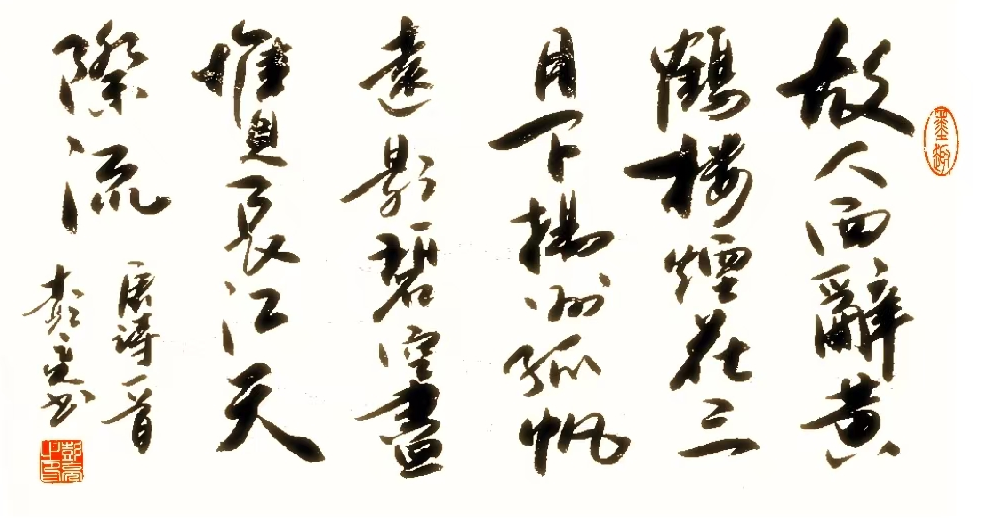 故人西辭黄
鶴楼煙花三
月下揚州孤帆
遠影碧空盡
惟見長江天
際流
唐詩一首
彭亮书
彭亮之印